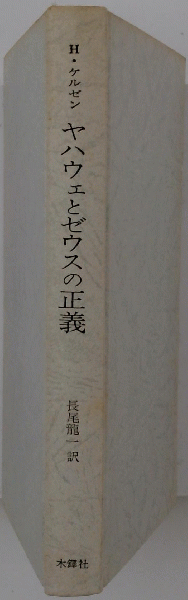 H・ケルゼン
ヤハウェとゼウスの正義
長尾龍一訳
木鐸社